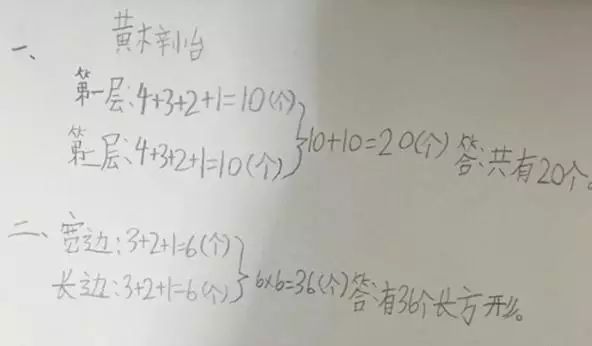 一、
黄木子台
第一层:4+3+2+1=10(个)
第二层:4+3+2+1=10(个)
10+10=20(个) 答:共有20个。
二、宽边:3+2+1=6(个)
长边:3+2+1=6(个)
6×6=36(个) 答:有36个长方形。